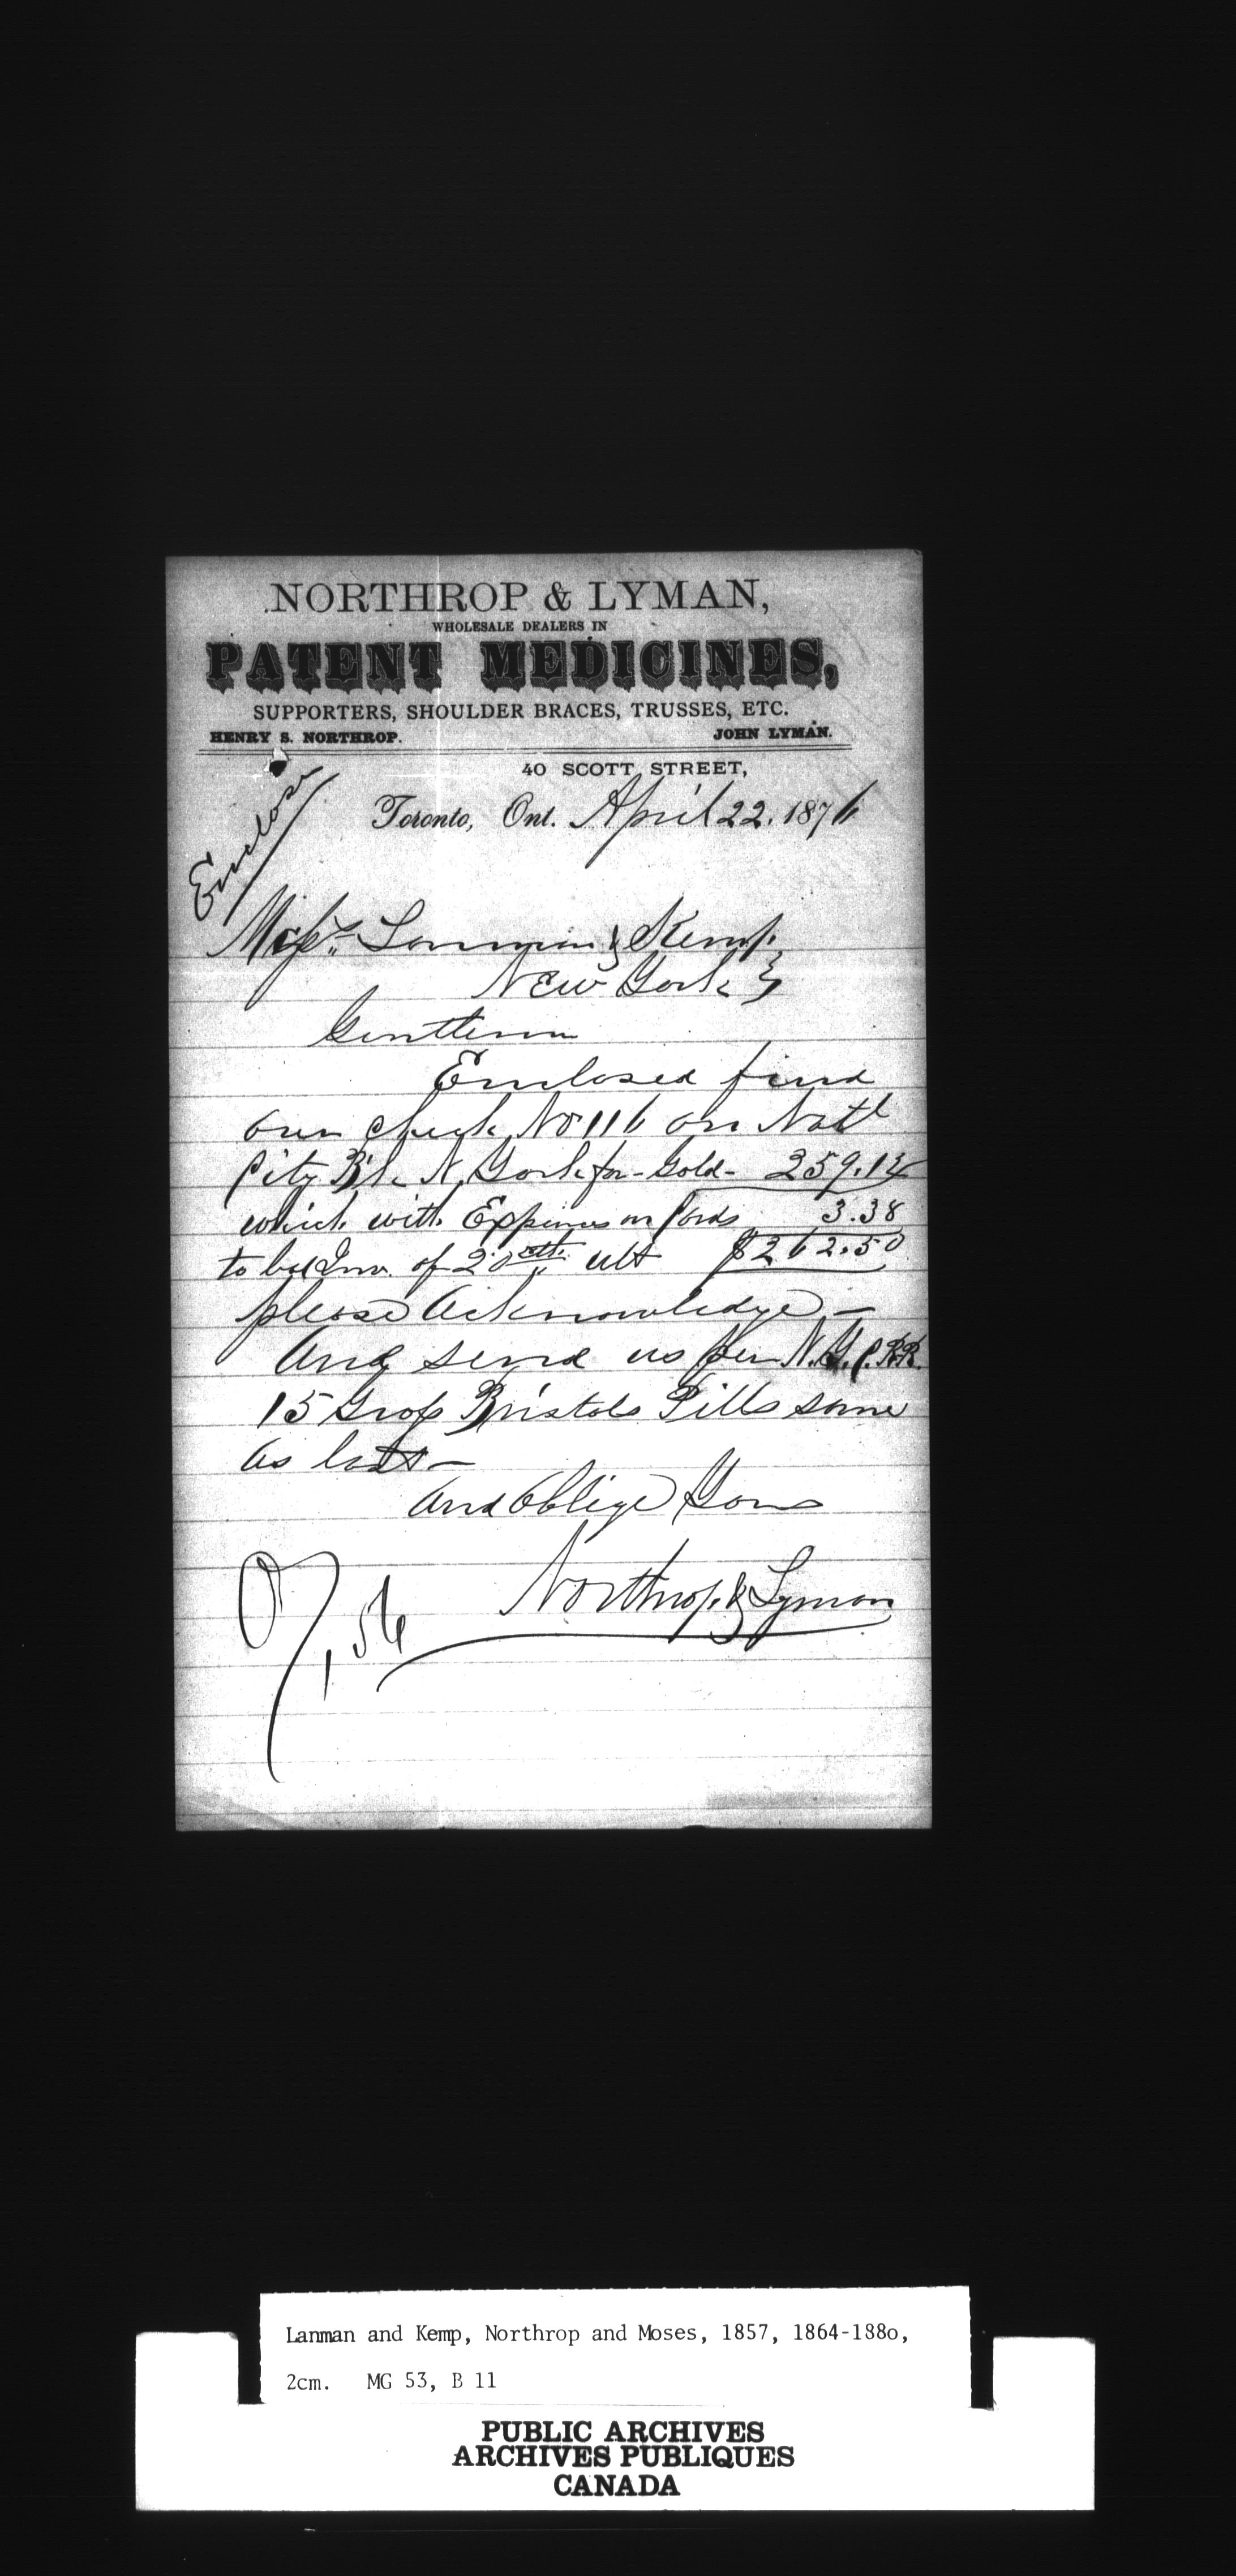 NORTHROP & LYMAN,
WHOLESALE DEALERS IN
PATENT MEDICINES,
SUPPORTERS, SHOULDER BRACES, TRUSSES, ETC.
HENRY S. NORTHROP. JOHN LYMAN.
40 SCOTT STREET,
Toronto, Ont. April 22. 1876
Enclose
Messrs Lanman & Kemp
New York
Gentlemen
Enclosed find
our check No 116 on Natl
City Bk N. York for Gold - 259.12
which with Expenses on Cards 3.38
to bal Inv. of 20th ult $262.50
please acknowledge -
And send us per N.Y.C.RR.
15 Gross Bristols Pills same
as last -
And Oblige Yours
Northrop & Lyman
Lanman and Kemp, Northrop and Moses, 1857, 1864-188o,
2cm. MG 53, B 11
PUBLIC ARCHIVES
ARCHIVES PUBLIQUES
CANADA